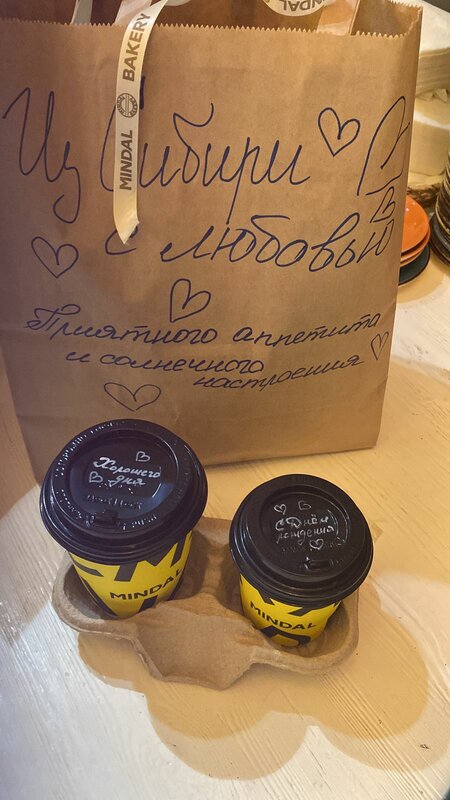 MINDAL BAKERY
MINDAL
Из Сибири
с любовью
Приятного аппетита
и солнечного
настроения
Хорошего
дня
С Днём
рождения
MINDAL
MINDAL